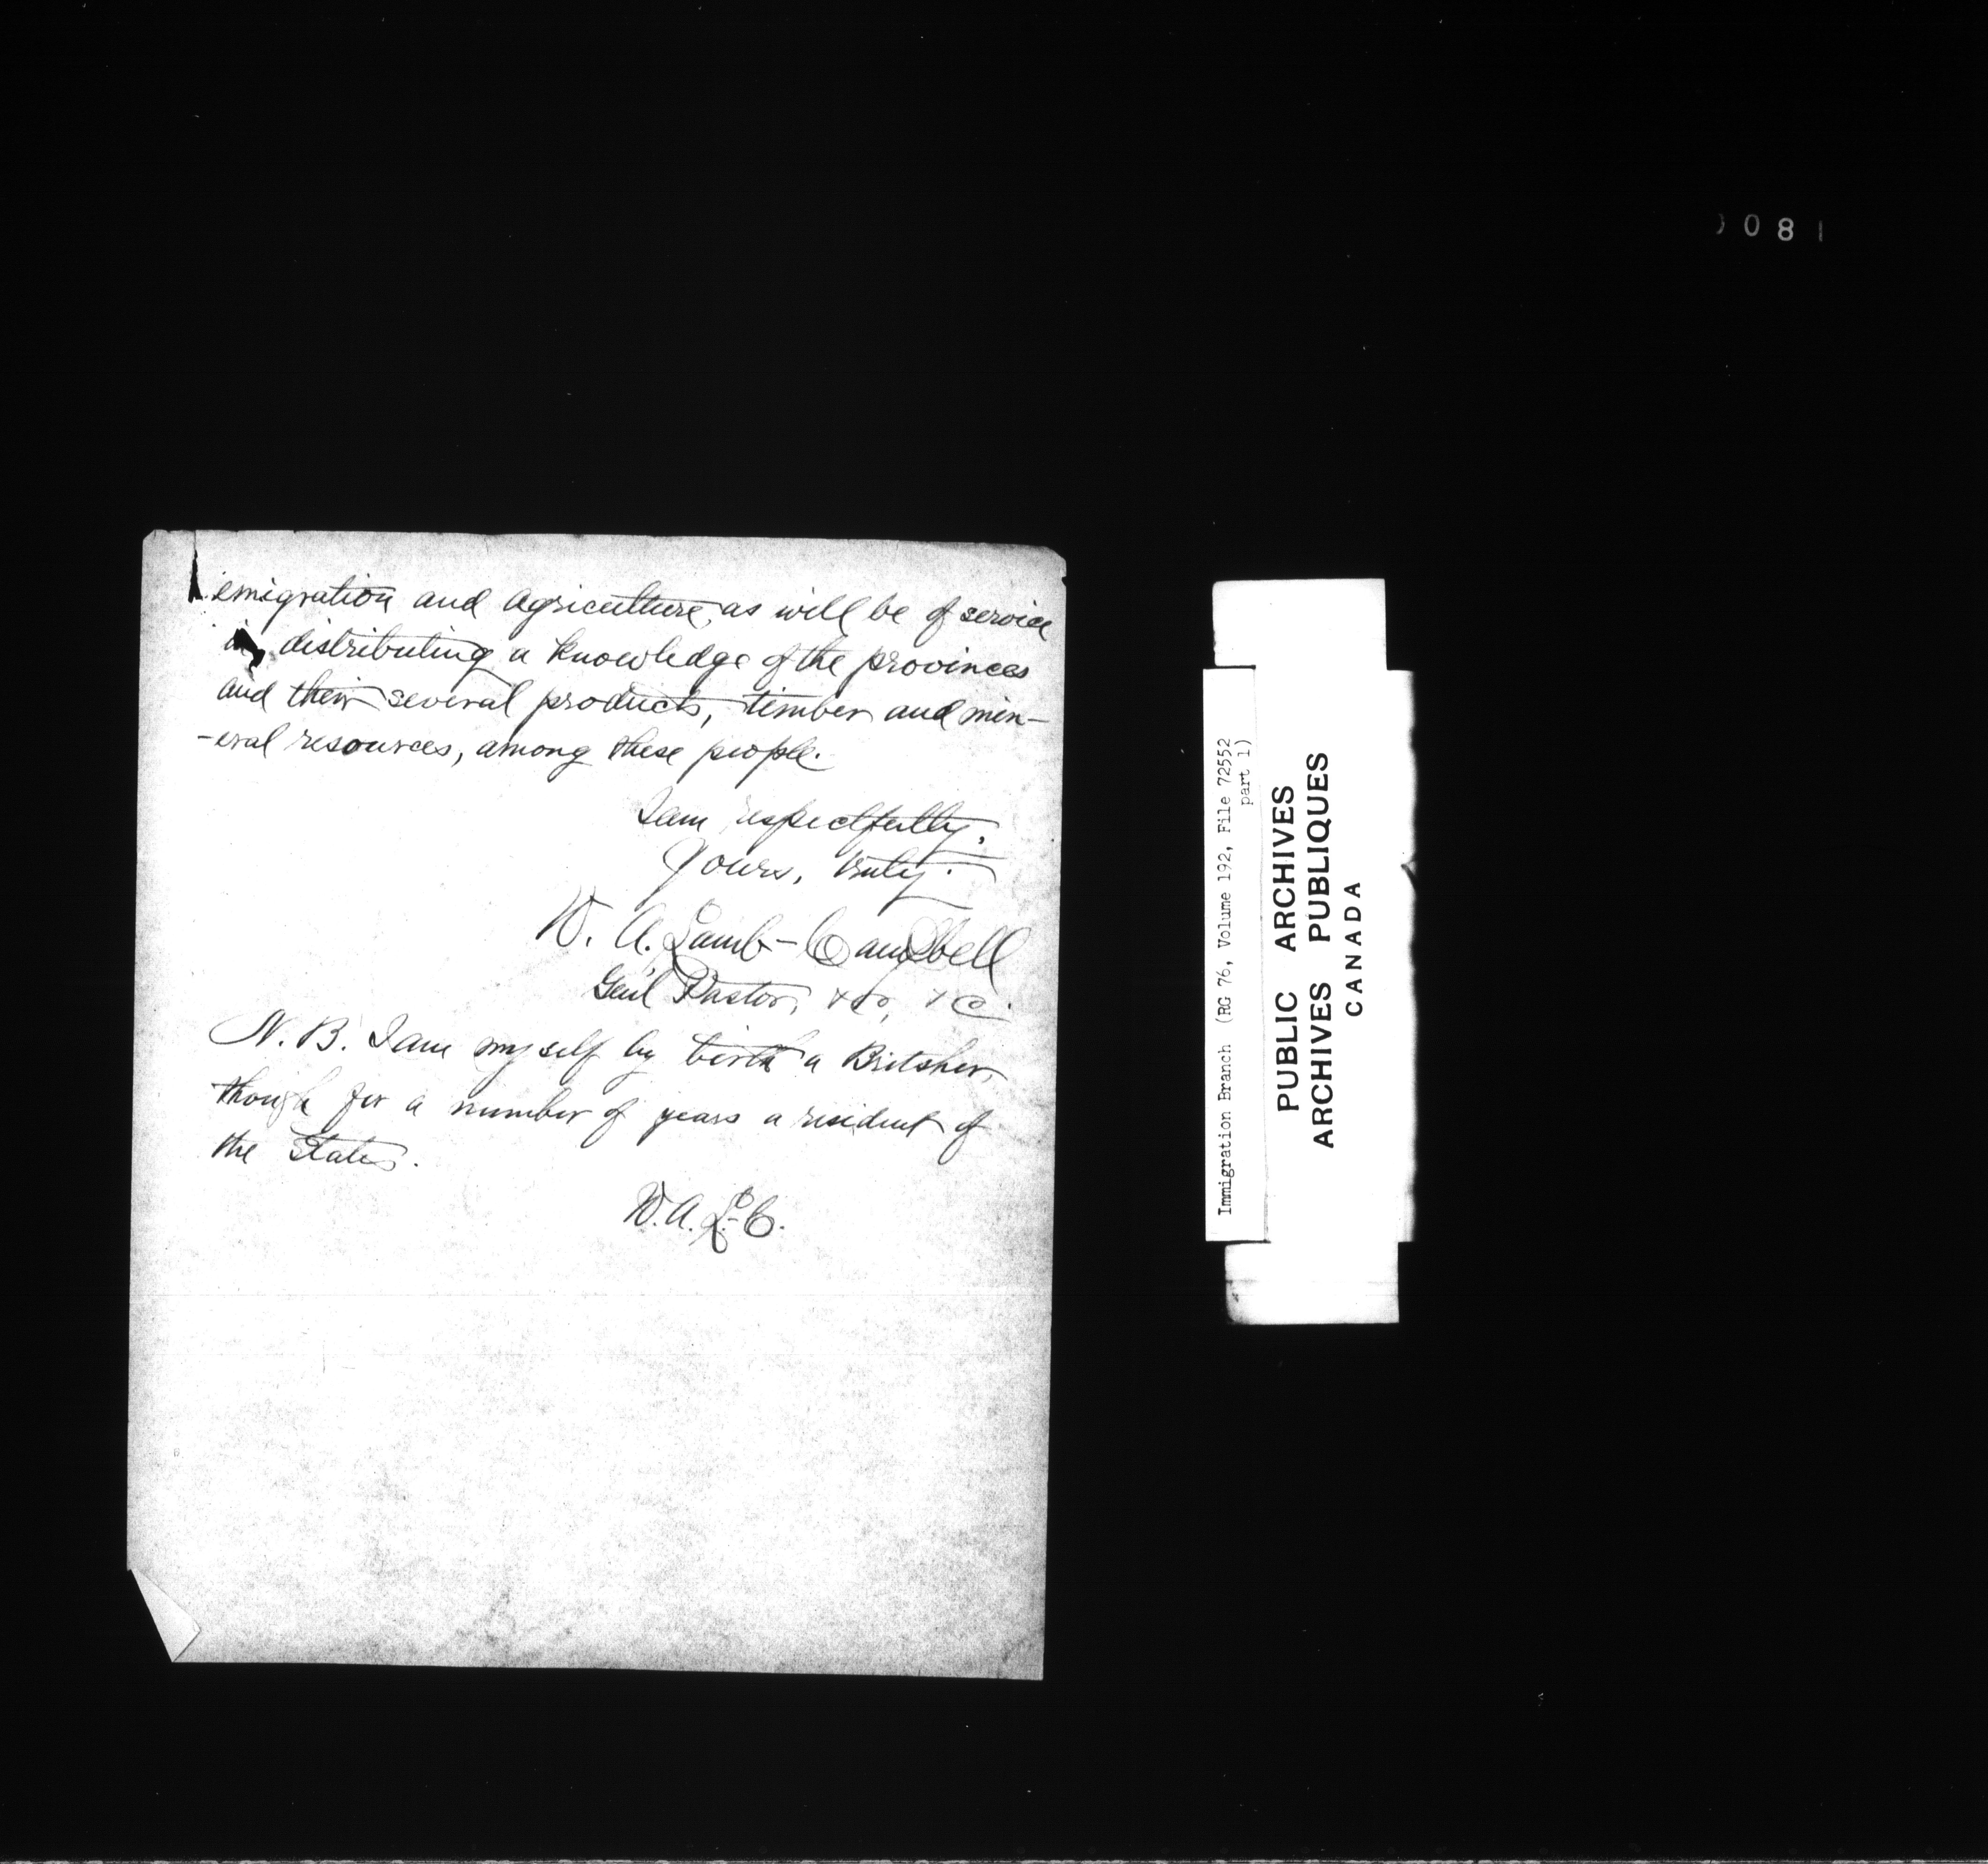 emigration and agriculture, as will be of service
in distributing a knowledge of the provinces
and their several products, timber and min-
-eral resources, among these people.
I am respectfully.
Yours, truly.
W. A. Lamb-Campbell
Gen'l Pastor, &c, &c.
N. B. I am myself by birth a Britsher,
though for a number of years a resident of
the States.
W. A. L-C.
Immigration Branch (RG 76, Volume 192, File 72552
part 1)
PUBLIC ARCHIVES
ARCHIVES PUBLIQUES
CANADA
081